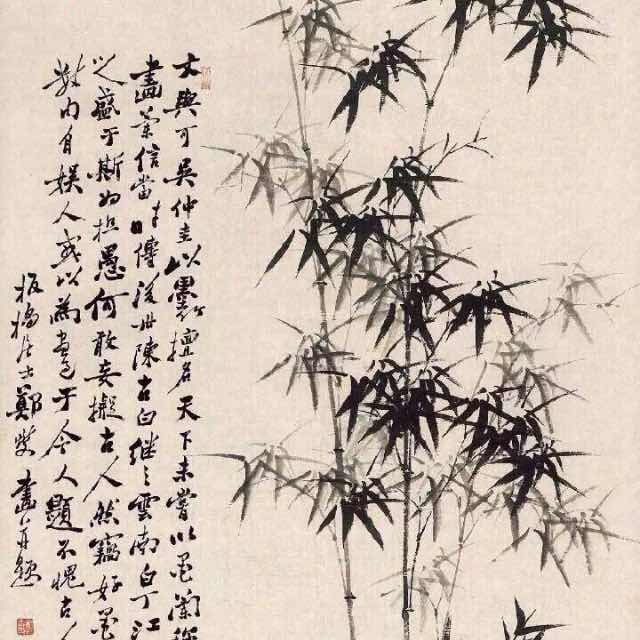 文與可吳仲圭以墨竹擅名天下未嘗以墨蘭稱
畫蘭信當時傳後世陳古白継之雲南白丁江
之盛于斯为極愚何敢妄擬古人然竊好墨
内自揆人或以為于今人題不愧古人
板橋居士鄭燮畫并題